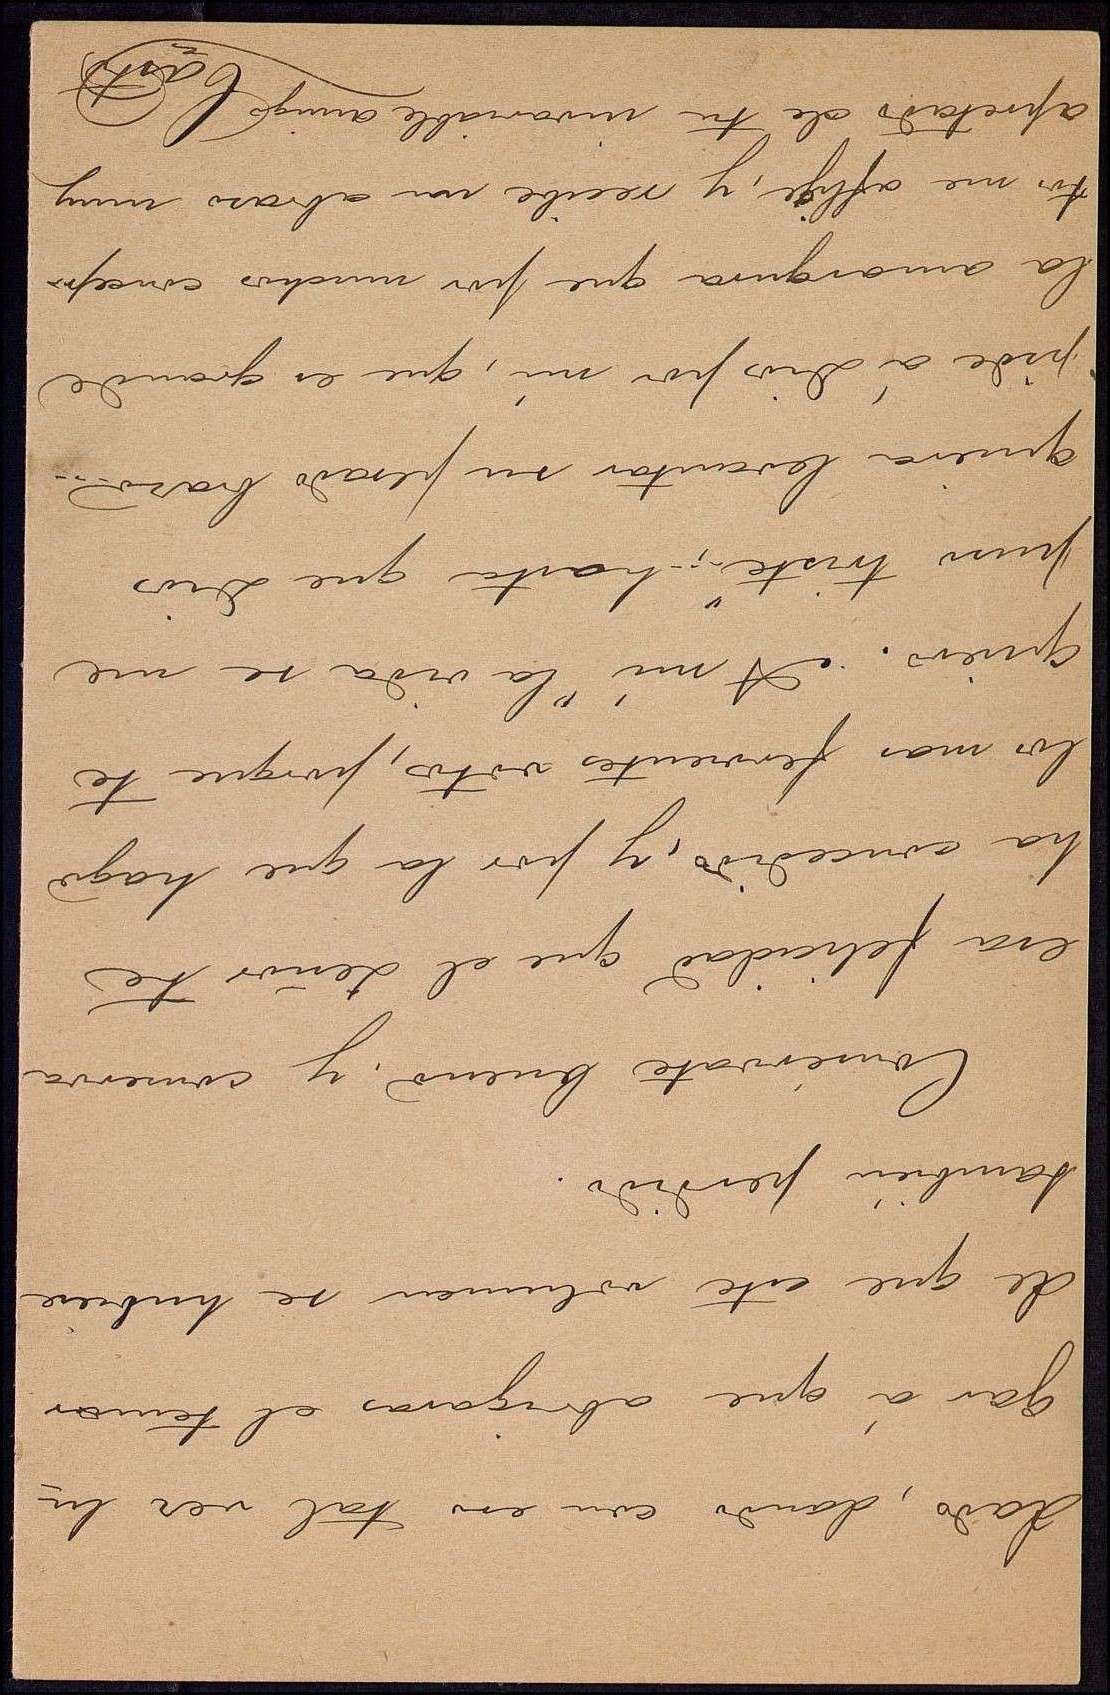 dado, dando con eso tal vez lu-
gar á que abrigaras el temor
de que este volumen se hubiese
tambien perdido.
Consérvate bueno, y conserva
esa felicidad que el Señor te
ha concedido, y por la que hago
los mas fervientes votos, porque te
quiero. A mí "la vida se me
puso triste"; hasta que Dios
quiera levantar su pesado brazo...
pide á Dios por mí, que es grande
la amargura que por muchos concep-
tos me aflije, y recibe un abrazo muy
apretado de tu invariable amigo
Casto